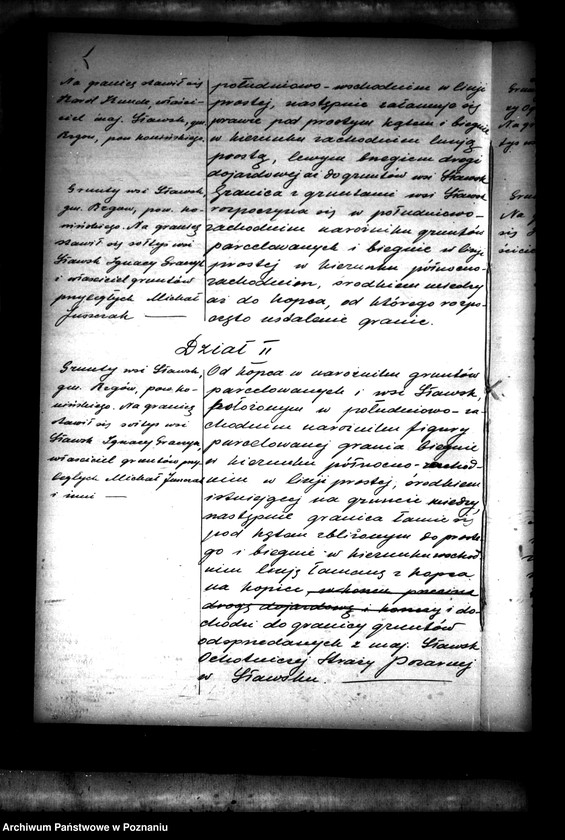 Na granicę stawił się
Karol Kunde, właści-
ciel maj. Sławsk, gm.
Rzgów, pow. konińskiego.
Grunty wsi Sławsk,
gm. Rzgów, pow. ko-
nińskiego. Na granicę
stawił się sołtys wsi
Sławsk Ignacy
i właściciel gruntów
przyległych Michał
Juszczak
południowo-wschodnim w linji
prostej, następnie załamuje się
prawie pod prostym kątem i biegnie
w kierunku zachodnim linją
prostą, lewym brzegiem drogi
dojazdowej aż do gruntów wsi Sławsk
Granica z gruntami wsi Sławsk
rozpoczyna się w południowo-
zachodnim narożniku gruntów
parcelowanych i biegnie w linji
prostej w kierunku północno-
zachodnim, środkiem miedzy
aż do kopca, od którego rozpo-
częto ustalenie granic.
Dział II
Grunty wsi Sławsk,
gm. Rzgów, pow. ko-
nińskiego. Na granicę
stawił się sołtys wsi
Sławsk Ignacy
właściciel gruntów przy-
ległych Michał
i inni
Od kopca w narożniku gruntów
parcelowanych i wsi Sławsk,
położonym w południowo-za-
chodnim narożniku figury
parcelowanej grania biegnie
w kierunku północno-zachod-
nim w linji prostej, środkiem
istniejącej na gruncie miedzy,
następnie granica łamie się
pod kątem zbliżonym do proste-
go i biegnie w kierunku wschod-
nim linją łamaną z kopca
na kopiec, w końcu przecina
drogę dojazdową i kończy i do-
chodzi do granicy gruntów
odsprzedanych z maj. Sławsk
Ochotniczej Straży Pożarnej
w Sławsku
Archiwum Państwowe w Poznaniu